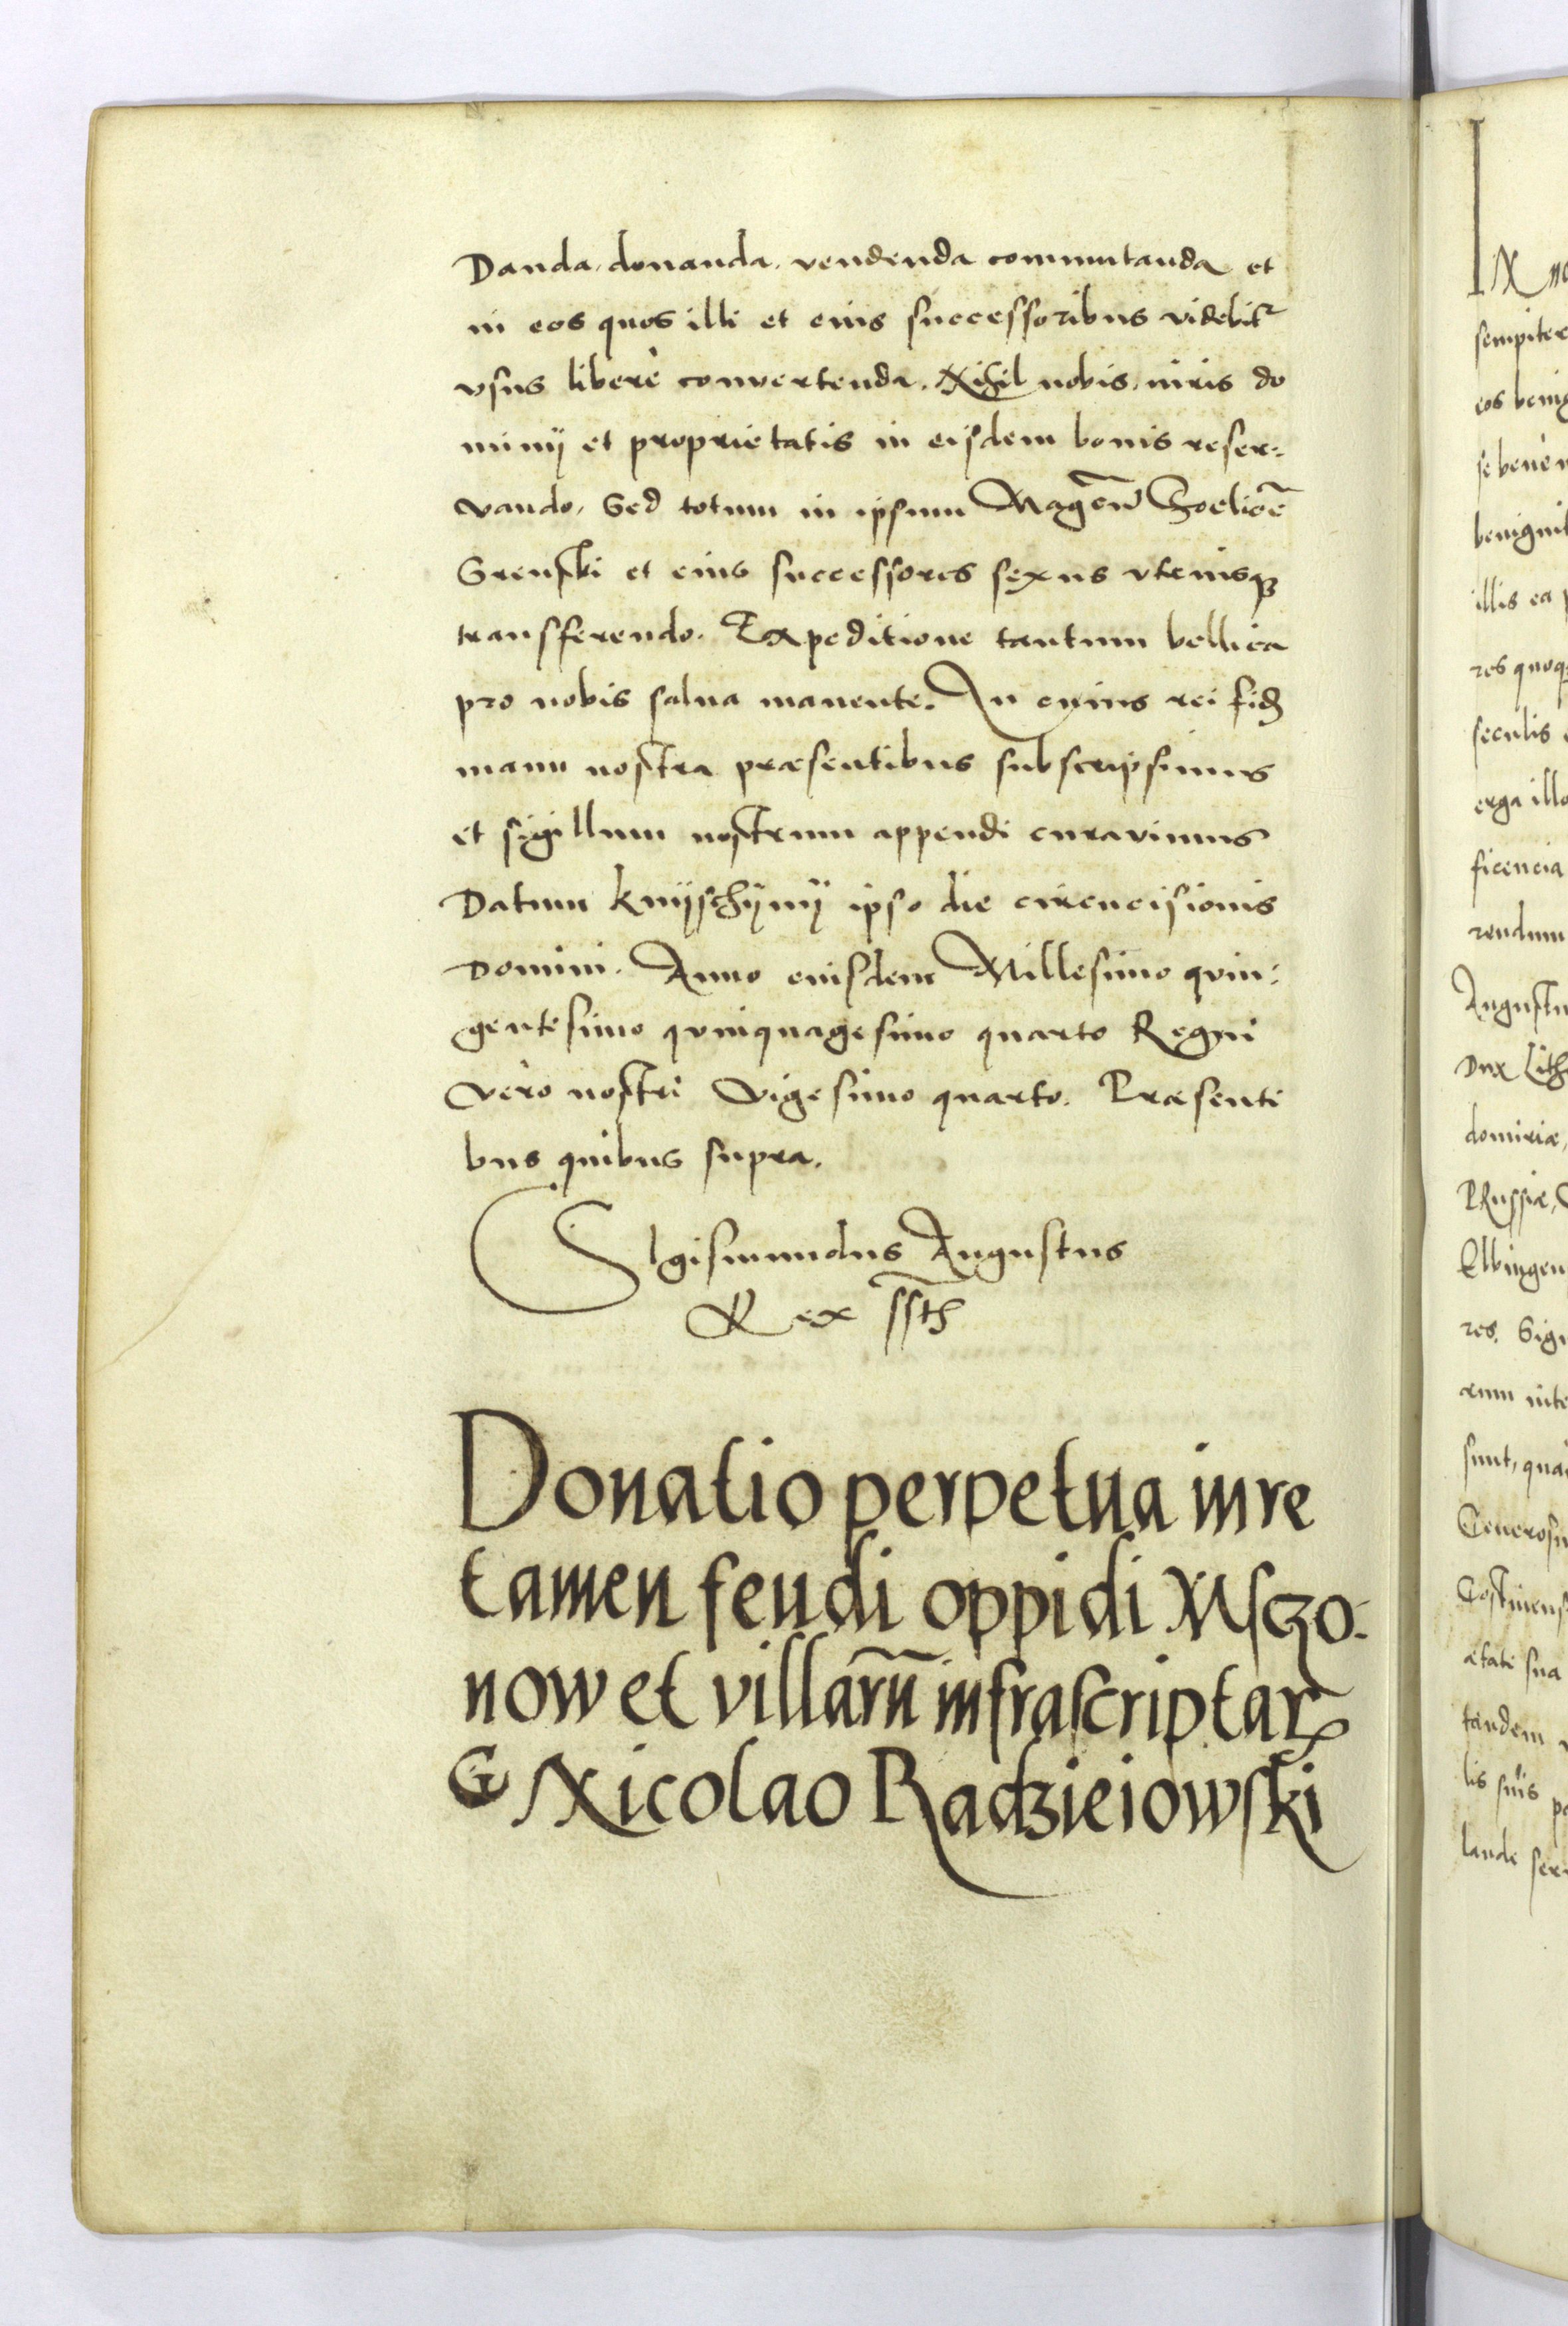 Danda, donanda, vendenda commutanda et
in eos quos illi et eius successoribus videbitr
vsus liberè convertenda. Nihil nobis, iuris do
minij et proprietatis in eisdem bonis reser=
vando, Sed totum in ipsum
et eius successores sexus vtriusq3
transferendo. Expeditione tantum bellica
pro nobis salua manente. In cuius rei fidē
manu nostra præsentibus subscripsimus
et sigillum nostrum appendi curavimus
Datum Knijschijnij ipso die circuncisionis
Domini. Anno eiusdem Millesimo quin:
gentesimo quinquagesimo quarto Regni
vero nostri Vigesimo quarto. Præsenti
bus quibus supra.
SIgismundus Augustus
Rex sst
Donatio perpetua iure
tamen feudi oppidi Msczo-
now et villarū infrascriptar
G Nicolao Radzieiowski
IN
sempiter
eos benig
se bene
benignit
illis ea
res quoq
seculis
erga illo
ficencia
rendum
Augustu
Dux Lith
domiriæ,
PRussiæ,
Elbingen
res. Sig
rum inte
sunt, qua
Generosu
Costinens
ætate sua
tandem
lis suis
laude ser